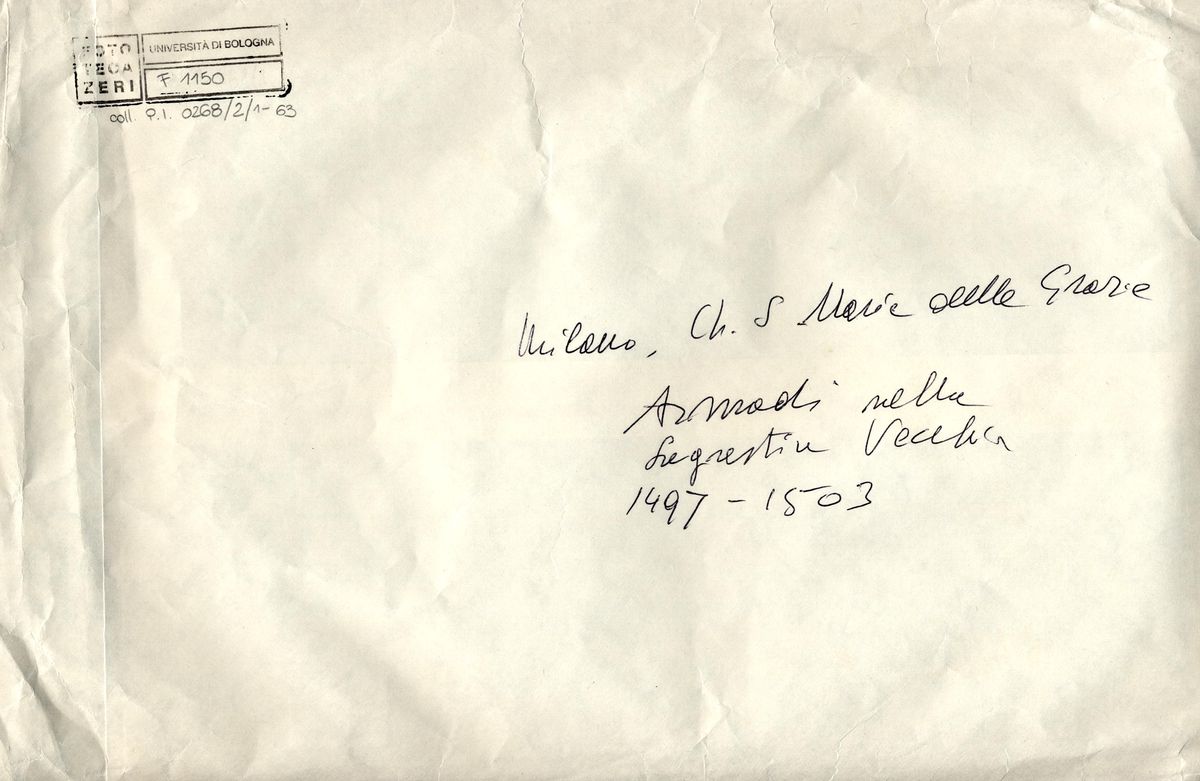 FOTO
TECA
ZERI
UNIVERSITÀ DI BOLOGNA
F 1150
coll. P.I. 0268/2/1-63
Milano, Ch. S Maria delle Grazie
Armadi nella
Sagrestia Vecchia
1497-1503